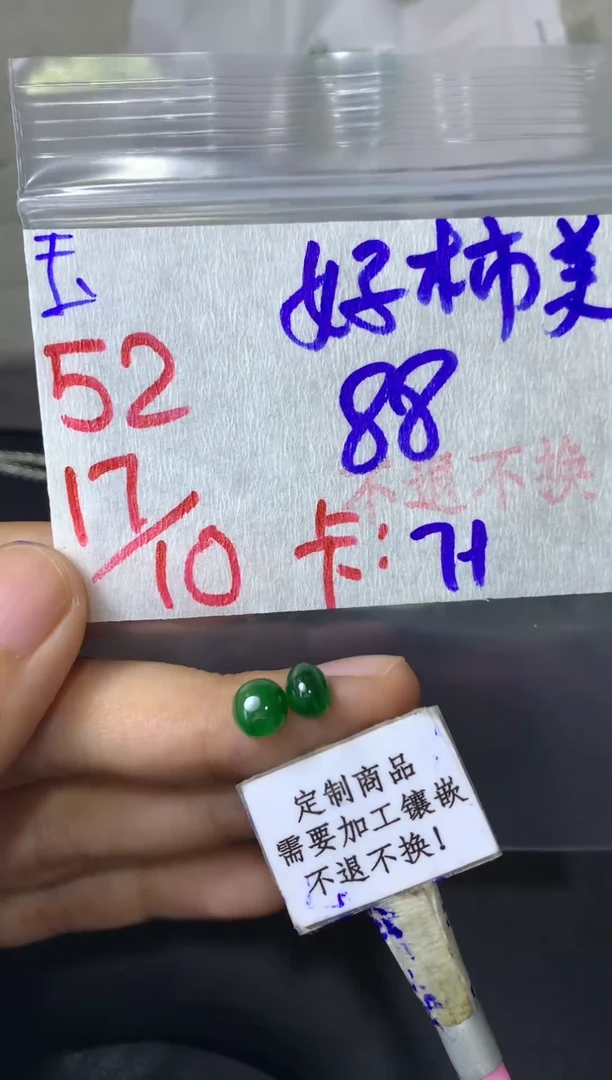 玉
好柿美
52
88
不退不换
17/10
卡:
定制商品
需要加工镶嵌
不退不换!